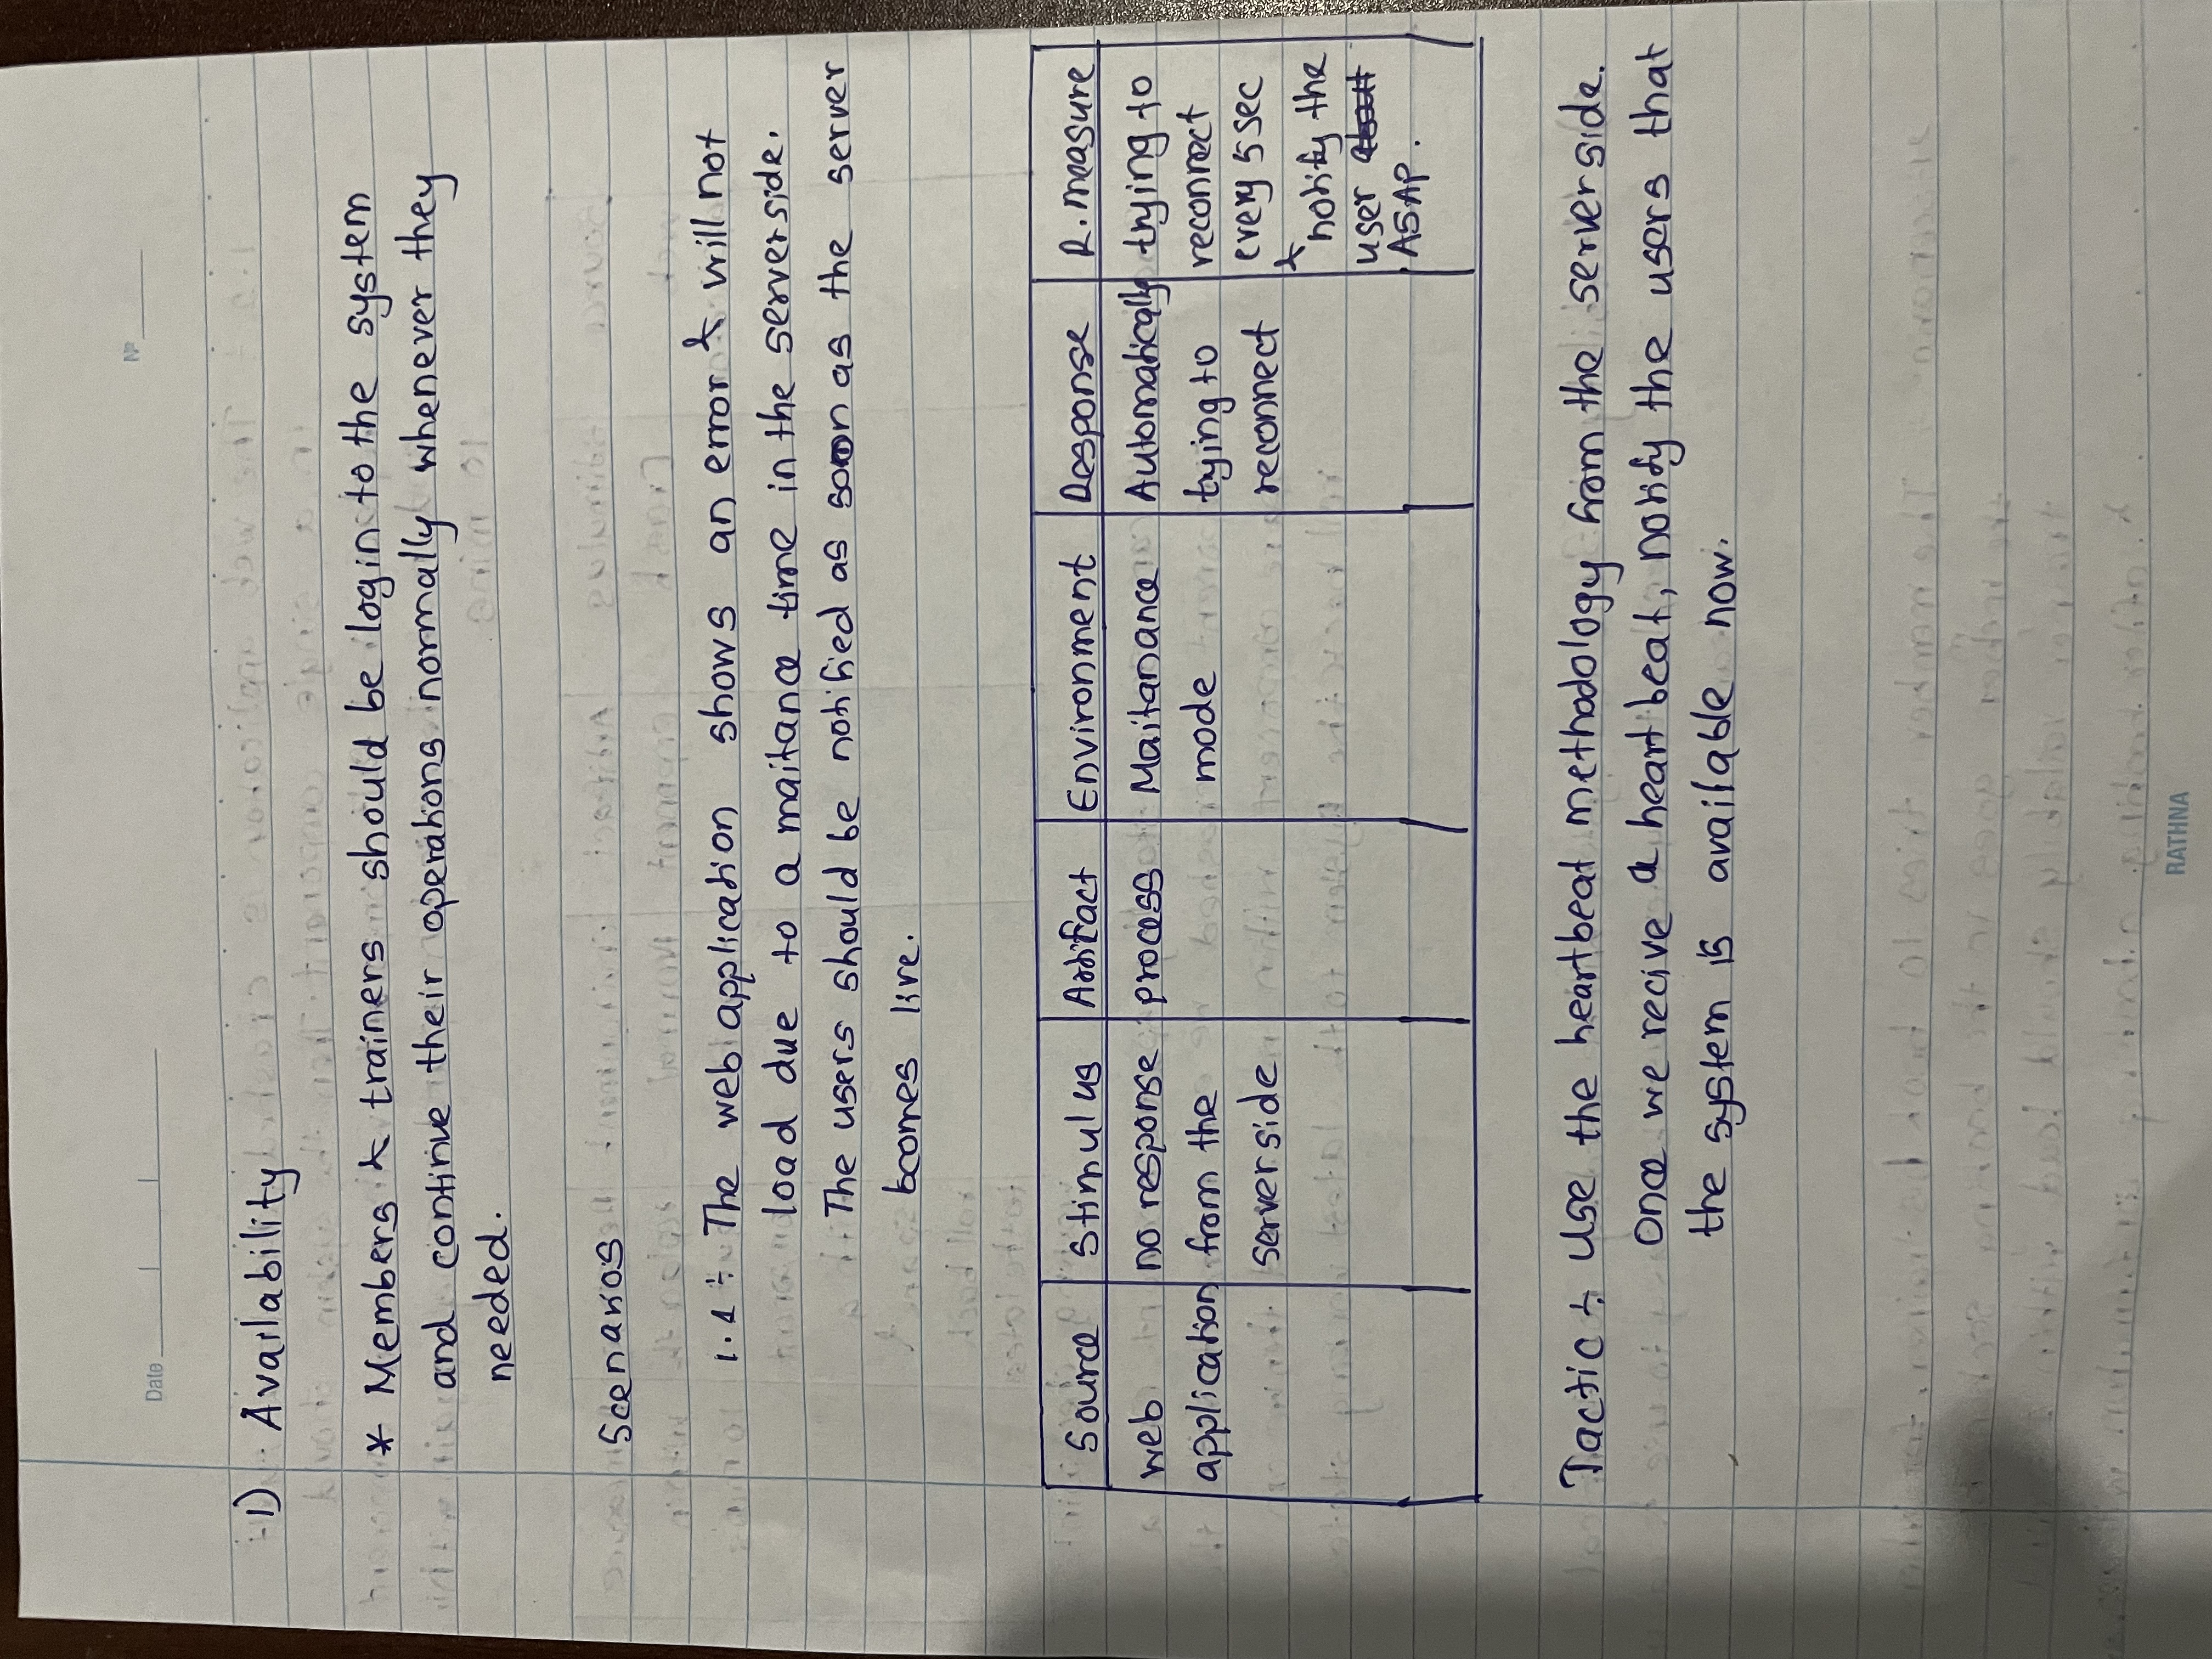 Date
Nº
1) Availability
* Members & trainers should be login to the system
and continue their operations normally whenever they
needed.
Scenarios
1.1 : The web application shows an error & will not
load due to a maitance time in the serverside.
The users should be notified as soon as the server
bcomes live.
Source | Stimulus | Artifact | Environment | Response | R. measure
web | no response | process | Maitanance | Automatically | trying to
application | from the | mode | trying to | reconnect
serverside | reconnect | every 5 sec
& notify the
user about
ASAP.
Tactic : Use the heartbeat methodology from the serverside.
Once we recive a heart beat, notify the users that
the system is available now.
RATHNA